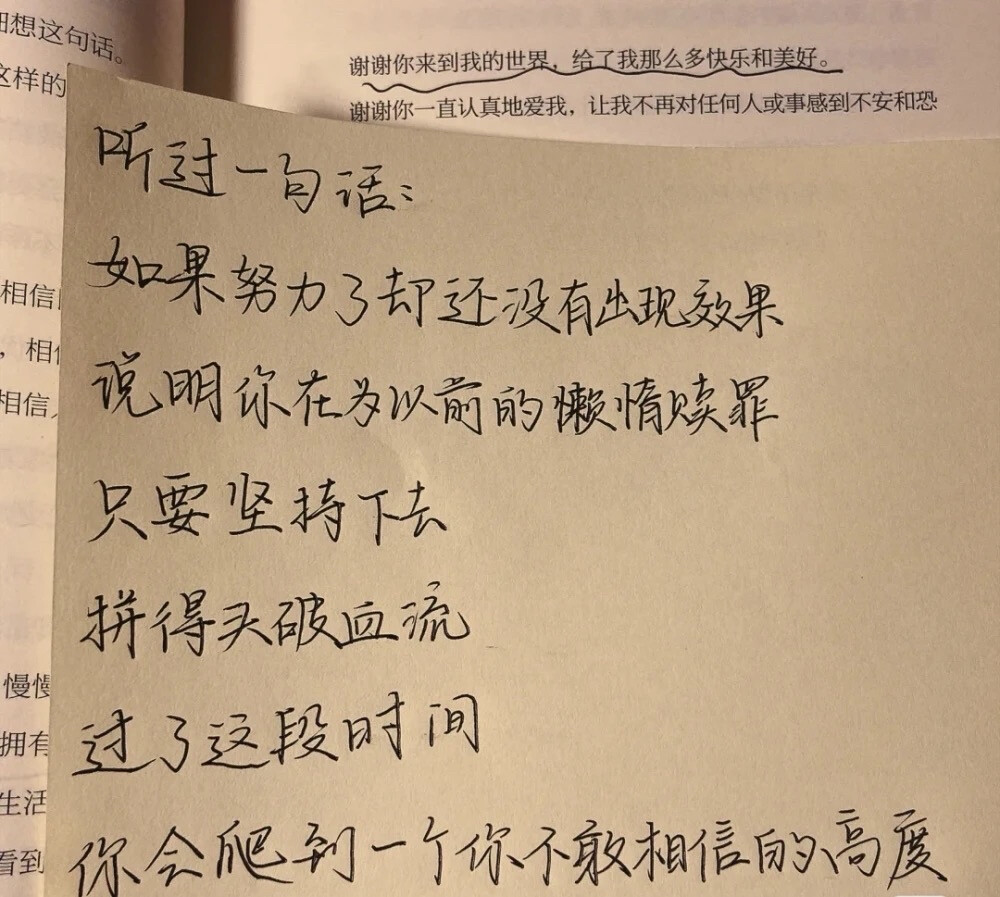 细想这句话。
这样的
谢谢你来到我的世界，给了我那么多快乐和美好。
谢谢你一直认真地爱我，让我不再对任何人或事感到不安和恐
听过一句话：
如果努力了却还没有出现效果
说明你在为以前的懒惰赎罪
只要坚持下去
拼得头破血流
过了这段时间
你会爬到一个你不敢相信的高度
相信
，相信
相信
慢慢
拥有
生活
看到